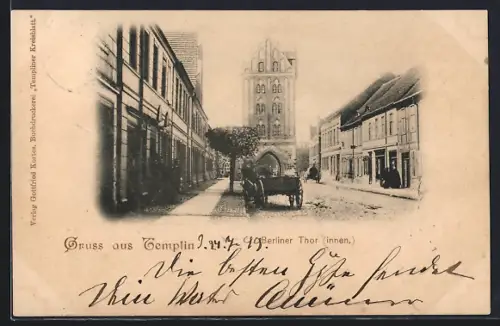 Verlag Gottfried Kortes. Buchdruckerei „Templiner Kreisblatt."
Gruss aus Templin
Berliner Thor (innen.)
Die besten Grüße sendet
Dein